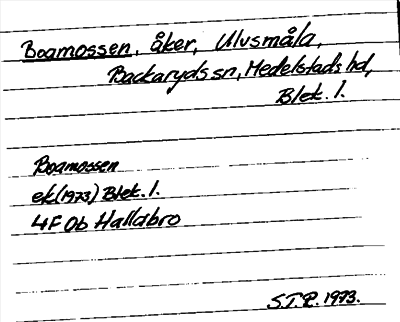 Boamossen, åker, Ulvsmåla,
Backaryds sn, Medelstads hd,
Blek. l.
Boamossen
ek (1973) Blek. l.
4F 0b Hallabro
S.T.P. 1973.